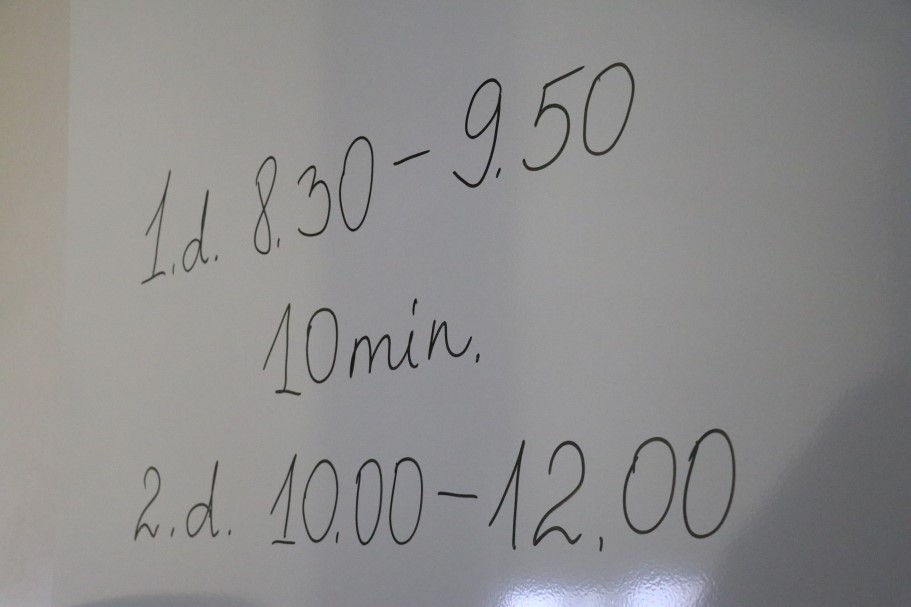 1.d. 8.30-9.50
10min.
2.d. 10.00-12.00